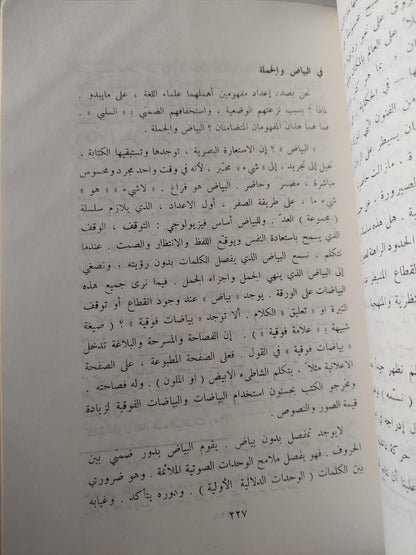 في البياض والجملة
نحن بصدد إعداد مفهومين أهملهما علماء اللغة ، على مايبدو .
لماذا ؟ بسبب نزعتهم الوضعية ، واستخفافهم الضمني بـ « السلبي » .
فما هما هذان المفهومان المتضامنان ؟ البياض والجملة .
« البياض » ؟ إن الاستعارة البصرية ، توجدها وتستبقيها الكتابة .
تحيل إلى تجريد ، إلى « شيء » مختبر ، في وقت واحد مجرد ومحسوس
مباشرة ، مضمر وحاضر . البياض هو فراغ . « لاشيء » « هو »
شيء ما ، على طريقة الصفر . أول الاعداد ، الذي يلازم سلسلة
( مجموعة ) العدّ . وللبياض أساس فيزيولوجي : التوقف ، الوقف
الذي يسمح باستعادة النفس ويوقّع اللفظ والانتظار والصمت . عندما
نتكلم ، نسمع البياض الذي يفصل الكلمات بدون رؤيته ، ونصغي
إلى البياض الذي ينهي الجمل واجزاء الجمل . فيما نرى جميع هذه
البياضات على الورقة . يوجد « بياض » عند وجود انقطاع أو توقف
النبرة و « تعليق » الكلام . ألا توجد « بياضات فوقية » ؟ ( صيغة
شبيهة بـ « علامة فوقية » ) . إن الفصاحة والمسرحة والبلاغة تدخل
« بياضات فوقية » في القول . فعلى الصفحة المطبوعة ، على الصفحة
الاعلانية مثلا ً ، يتكلم الشاطىء الابيض ( او الملون ) . وله فصاحته .
ومخرجو الكتب يحسنون استخدام البياضات والبياضات الفوقية لزيادة
قيمة الصور والنصوص .
لايوجد تمفصل بدون بياض . يقوم البياض بدور ضمني بين
الحروف . فهو يفصل ملامح الوحدات الصوتية الملائمة . وهو ضروري
بين الكلمات ( الوحدات الدلالية الأولية ) . ودوره يتأكد . وغيابه
٢٢٧